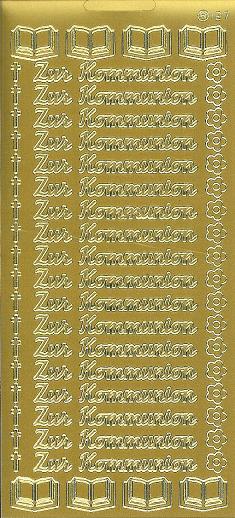 127
Zur Kommunion
Zur Kommunion
Zur Kommunion
Zur Kommunion
Zur Kommunion
Zur Kommunion
Zur Kommunion
Zur Kommunion
Zur Kommunion
Zur Kommunion
Zur Kommunion
Zur Kommunion
Zur Kommunion
Zur Kommunion
Zur Kommunion
Zur Kommunion
Zur Kommunion
Zur Kommunion